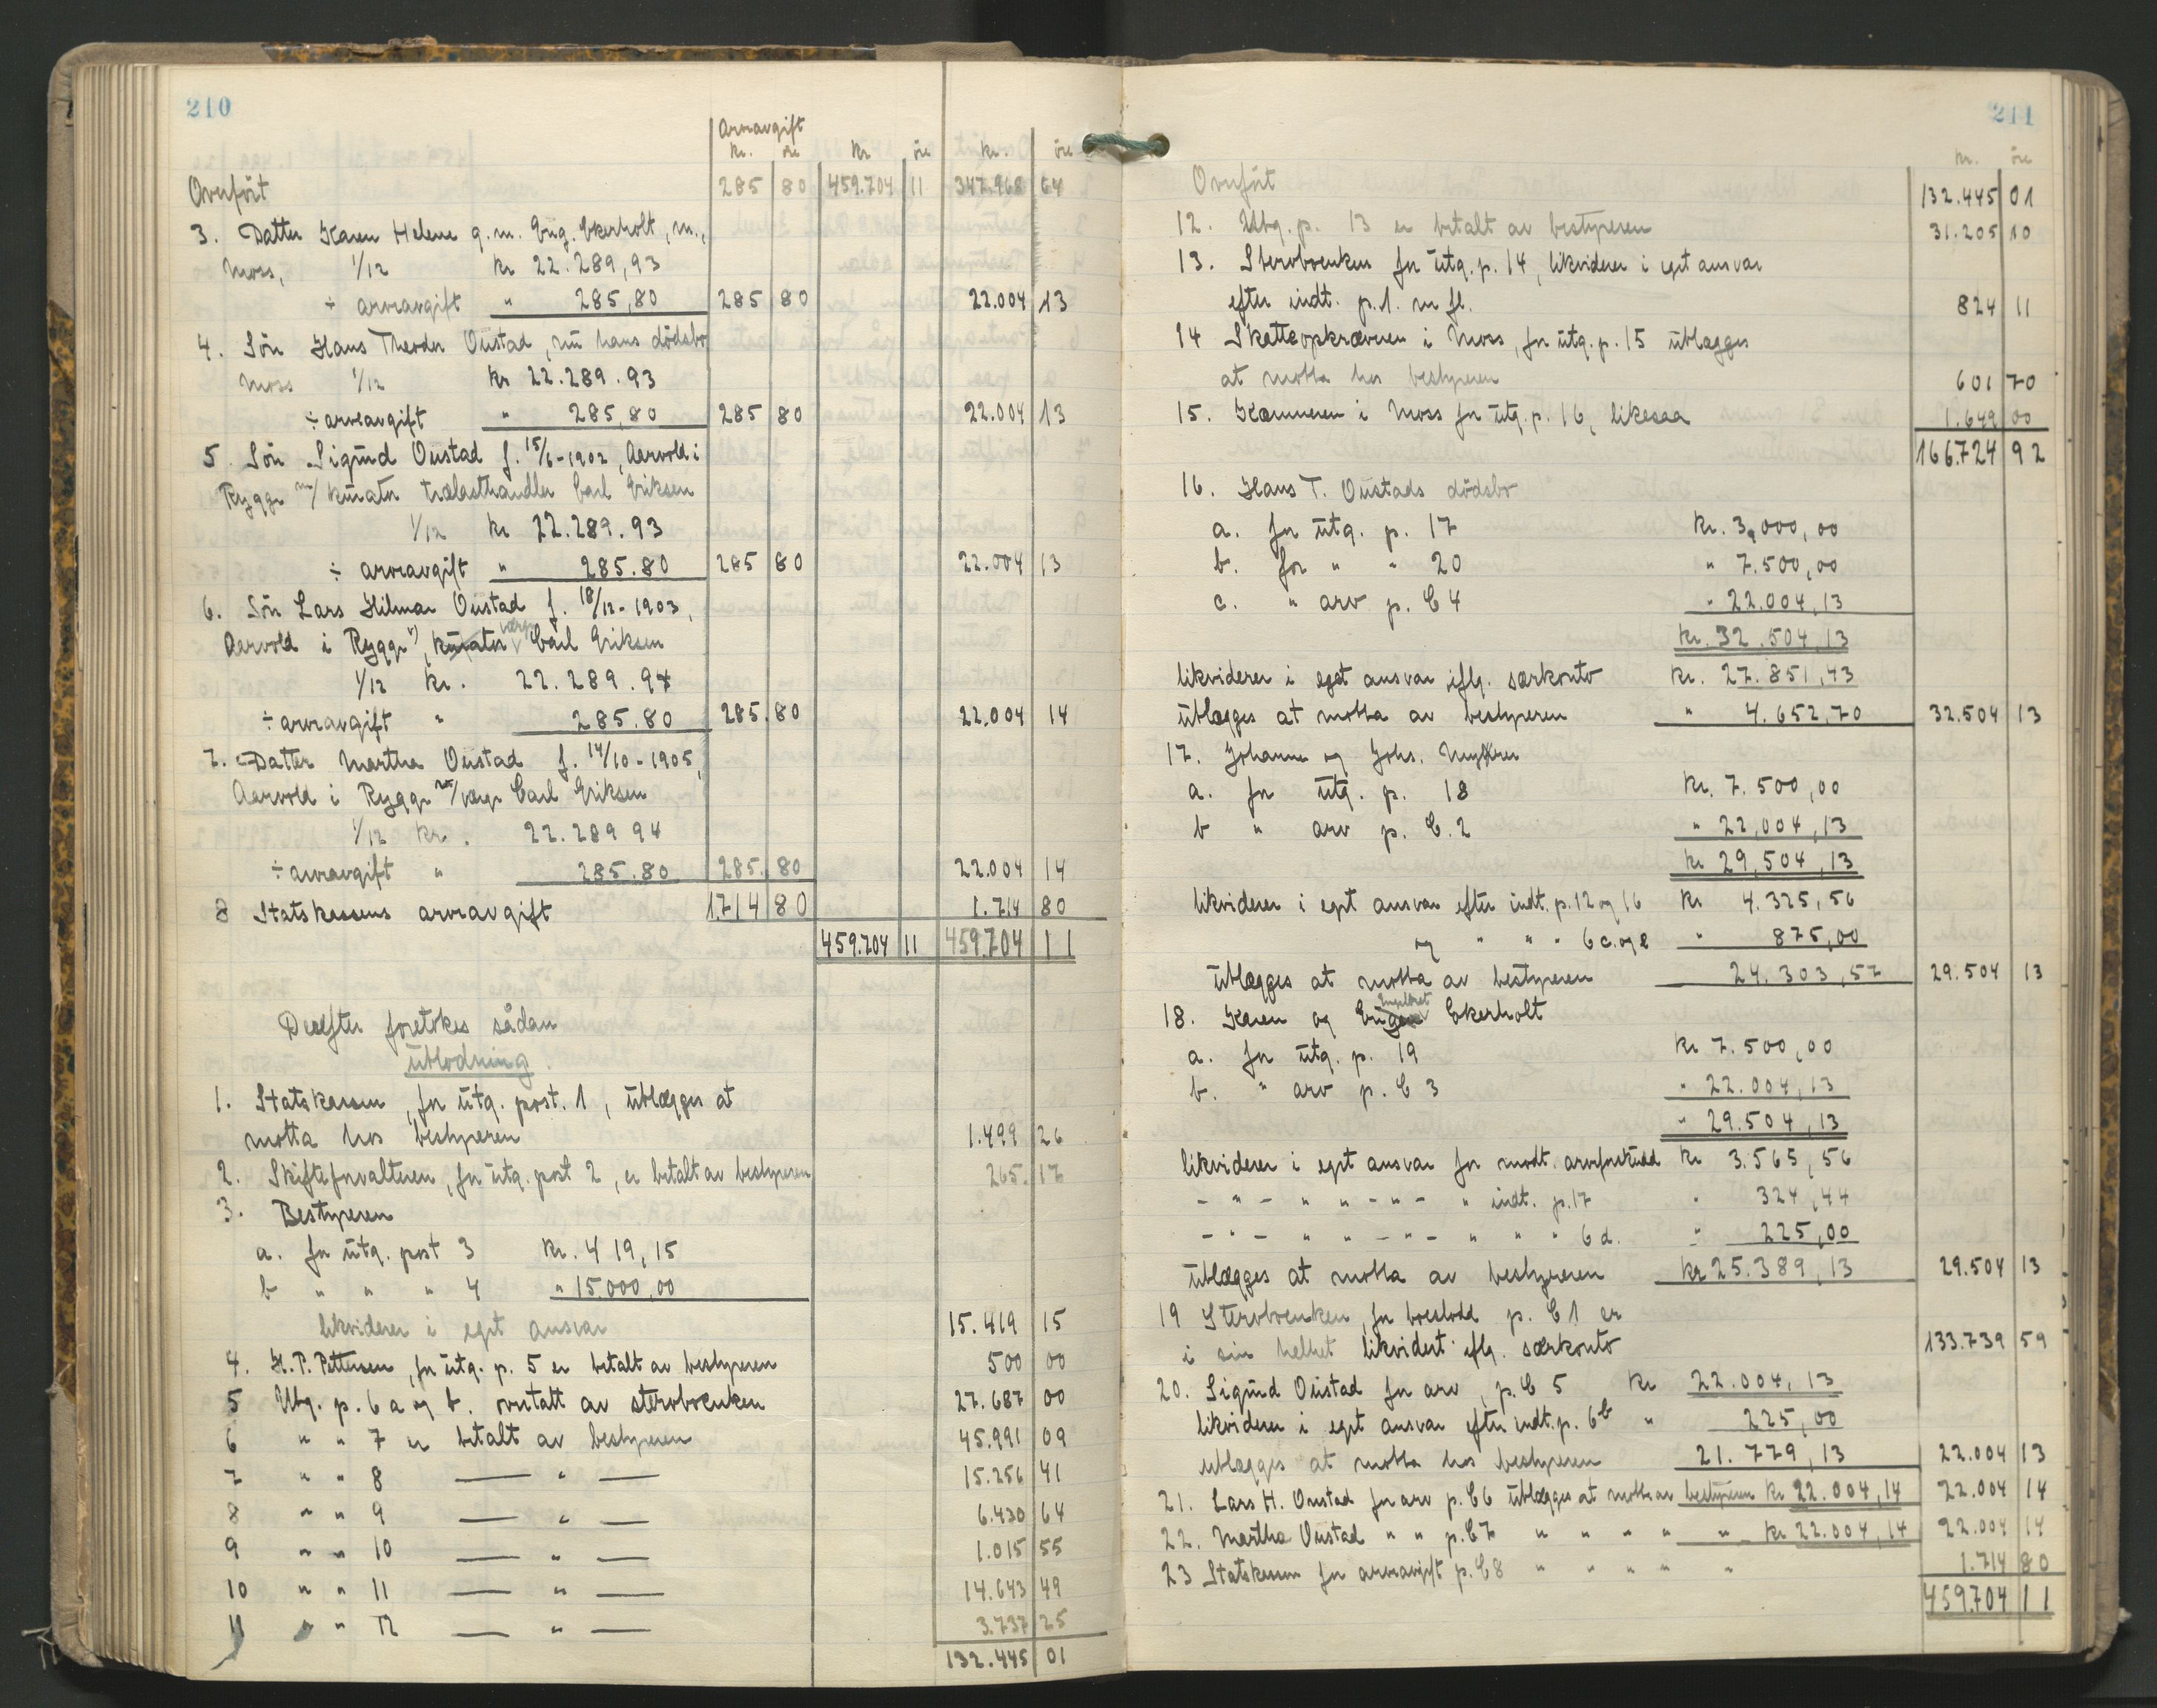 210
Arveavgift
kr. øre kr øre kr. øre
Overført 285 80 459.704 11 347.968 64
3. Datter Karen Helene g.m. Eug. Ekerholt, m.,
Moss, 1/12 kr 22.289,93
÷ arveavgift " 285,80 285 80 22.004 13
4. Sön Hans Theodor Oustad, nu hans dödsbo
Moss 1/12 kr 22.289.93
÷ arveavgift " 285,80 285 80 22.004 13
5. Sön Sigurd Oustad f. 15/6-1902, Aarvold i
Rygge m/ kurator trælasthandler Carl Eriksen
1/12 kr 22.289.93
÷ arveavgift " 285.80 285 80 22.004 13
6. Sön Lars Hilmar Oustad f. 18/12-1903,
Aarvold i Rygge, kurator verge Carl Eriksen
1/12 kr. 22.289.94
÷ arveavgift " 285.80 285.80 22.004 14
7. Datter Martha Oustad f. 14/10-1905,
Aarvold i Rygge m/verge Carl Eriksen
1/12 kr. 22.289 94
÷ arveavgift " 285.80 285.80 22.004 14
8 Statskassens arveavgift 1714 80 1.714 80
459.704 11 459.704 11
Derefter foretokes sådan
utlodning.
1. Statskassen, for utg. post. 1, utlægges at
motta hos bestyreren 1.499 26
2. Skifteforvalteren, for utg. post 2, er betalt av bestyreren 265.17
3. Bestyreren
a. for utg. post 3 kr. 419,15
b " " " 4 " 15.000,00
likviderer i eget ansvar 15.419 15
4. H.P. Pettersen, for utg. p. 5 er betalt av bestyreren 500 00
5 Utg. p. 6 a og b. overtatt av stervboenken 27.687 00
6 " " 7 er betalt av bestyreren 45.991 09
7 " " 8 — " — 15.256 41
8 " " 9 — " — 6.430 64
9 " " 10 — " — 1.015 55
10 " " 11 — " — 14.643 49
11 " " 12 — " — 3.737 25
132.445 01
211
kr. øre
Overført 132.445 01
12. Utg. p. 13 er betalt av bestyreren 31.205 10
13. Stervboenken for utg. p. 14, likviderer i eget ansvar
efter indt. p. 1. m fl. 824 11
14 Skatteopkræveren i Moss, for utg. p. 15 utlægges
at motta hos bestyreren 601 70
15. Kæmneren i Moss for utg. p. 16, likesaa 1.649 00
166.724 92
16. Hans T. Oustads dödsbo
a. for utg. p. 17 kr. 3.000,00
b. for " " 20 " 7.500,00
c. " arv p. C 4 " 22.004,13
kr. 32.504,13
likviderer i eget ansvar iflg. særkonto kr. 27.851,43
utlægges at motta av bestyreren " 4.652,70 32.504 13
17. Johanne og Johs.
a. for utg. p. 18 kr. 7.500,00
b " arv p. C. 2 " 22,004,13
kr 29,504,13
likviderer i eget ansvar efter indt. p. 12 og 16 kr 4.325,56
og " " " 6 c. og e " 875,00
utlægges at motta av bestyreren 24.303,57 29.504 13
18. Karen og Eugen Ekerholt
a. for utg. p. 19 kr 7.500,00
b. " arv p. C 3 " 22.004,13
" 29.504,13
likviderer i eget ansvar for modt. arveforskudd kr 3.565,56
- " - " " - " - " indt. p. 17 " 324,44
- " - " " - " - " " " 6 d. " 225,00
utlægges at motta av bestyreren kr 25.389,13 29.504 13
19 Stervboenken, for boeslodd p. C 1 er
i sin helhet likvidert iflg. særkonto 133.739 59
20. Sigurd Oustad for arv, p. C 5 kr 22.004,13
likviderer i eget ansvar efter indt. p. 6b " 225,00
utlægges at motta hos bestyreren 21.779,13 22.004 13
21. Lars H. Oustad for arv p. C6 utlægges at motta av bestyreren kr 22.004,14 22.004 14
22. Martha Oustad " " p. C7 " " " " " kr 22.004,14 22.004 14
23 Statskassen for arveavgift p. C8 " " " " " 1.714 80
459.704 11